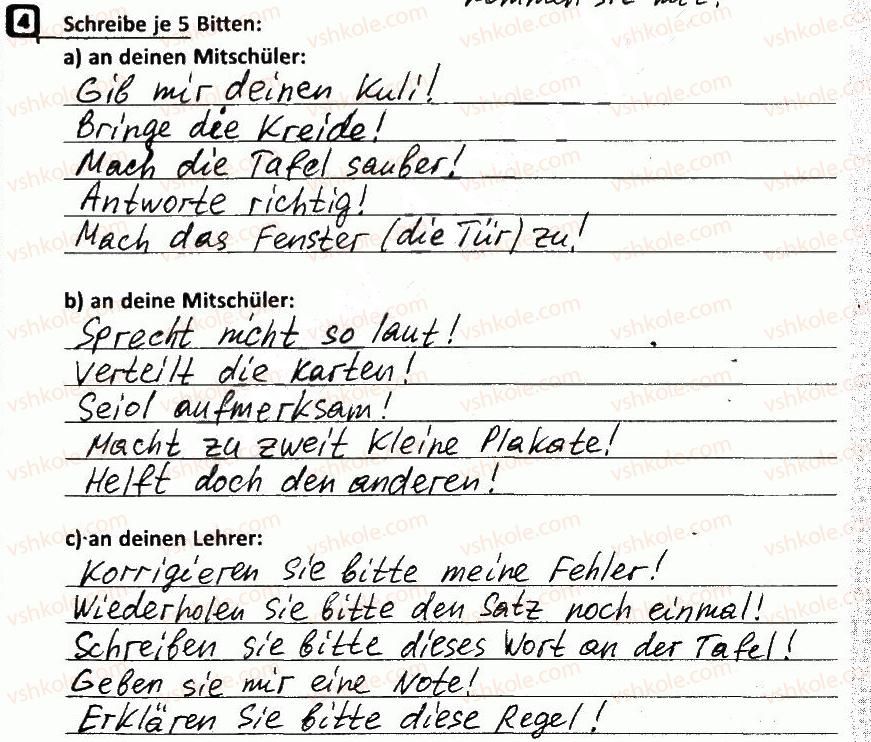 kommen Sie mit!
4 Schreibe je 5 Bitten:
a) an deinen Mitschüler:
Gib mir deinen Kuli!
Bringe die Kreide!
Mach die Tafel sauber!
Antworte richtig!
Mach das Fenster (die Tür) zu!
b) an deine Mitschüler:
Sprecht nicht so laut!
Verteilt die Karten!
Seid aufmerksam!
Macht zu zweit kleine Plakate!
Helft doch den anderen!
c) an deinen Lehrer:
Korrigieren Sie bitte meine Fehler!
Wiederholen Sie bitte den Satz noch einmal!
Schreiben sie bitte dieses Wort an der Tafel!
Geben sie mir eine Note!
Erklären Sie bitte diese Regel!
vshkole.com